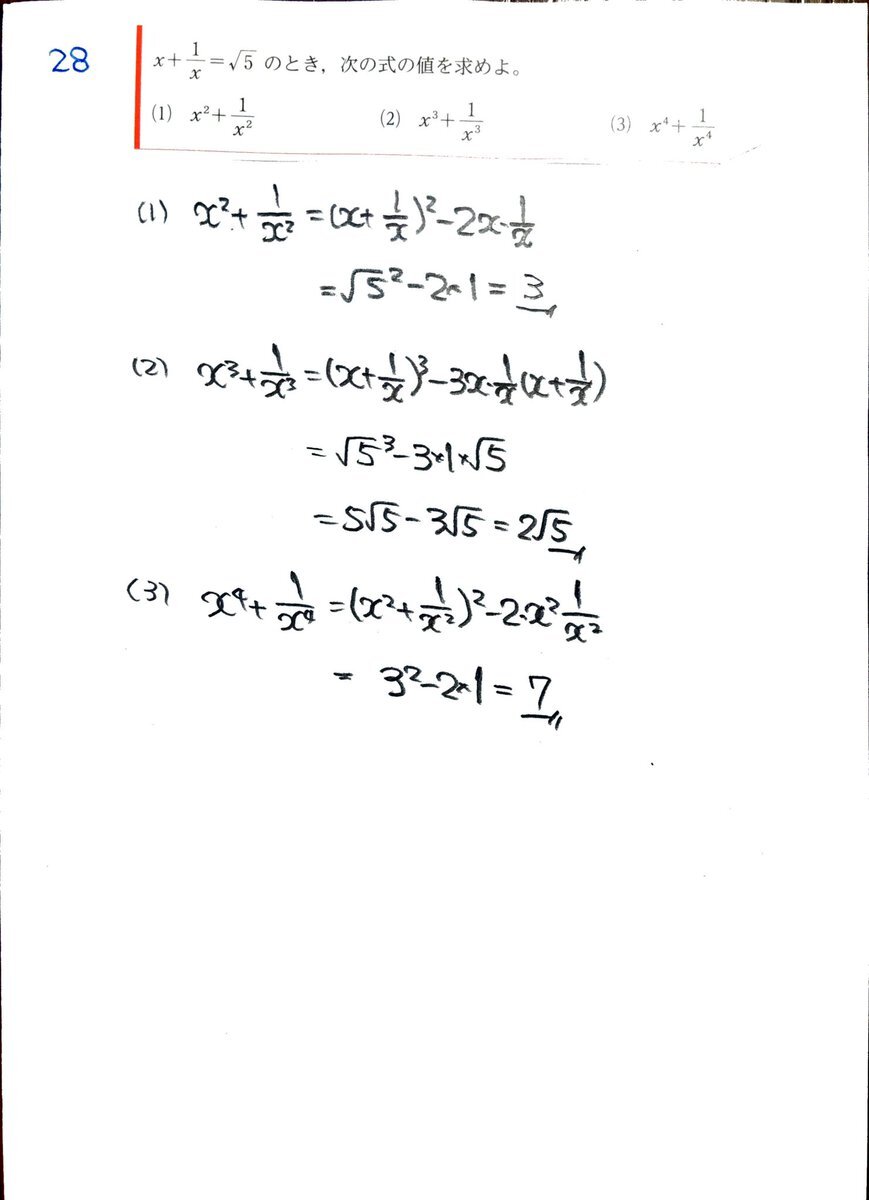 28
x+1/x=√5 のとき，次の式の値を求めよ。
(1) x²+1/x² (2) x³+1/x³ (3) x⁴+1/x⁴
(1) x²+1/x² =(x+1/x)²-2x·1/x
=√5²-2×1=3
(2) x³+1/x³=(x+1/x)³-3x·1/x(x+1/x)
=√5³-3×1×√5
=5√5-3√5=2√5
(3) x⁴+1/x⁴=(x²+1/x²)²-2·x²·1/x²
= 3²-2×1=7